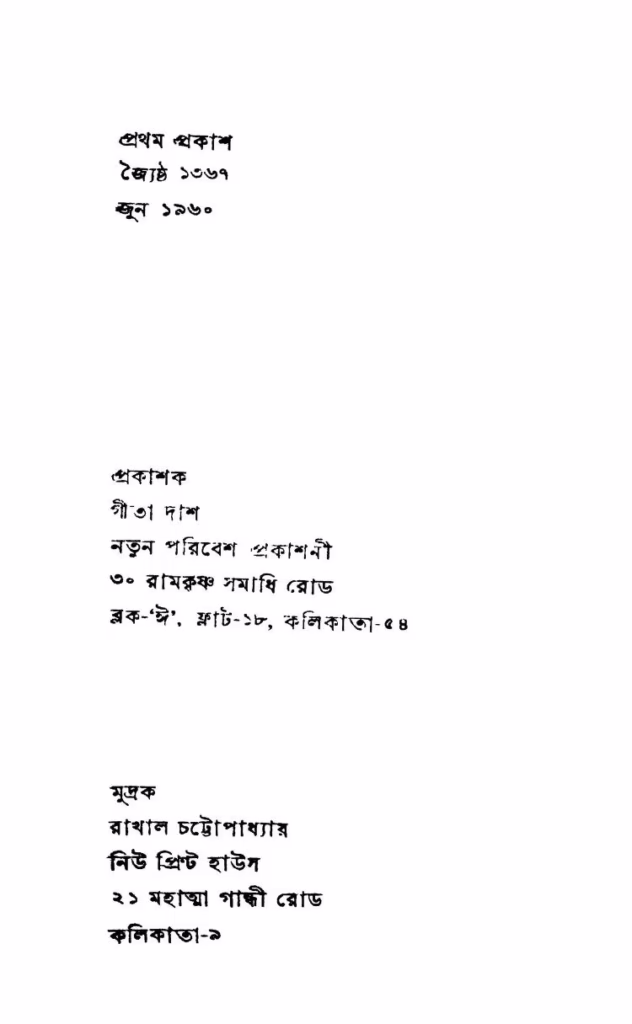 প্রথম প্রকাশ
জ্যৈষ্ঠ ১৩৬৭
জুন ১৯৬০
প্রকাশক
গীতা দাশ
নতুন পরিবেশ প্রকাশনী
৩০ রামকৃষ্ণ সমাধি রোড
ব্লক-‘ঈ’, ফ্লাট-১৮, কলিকাতা-৫৪
মুদ্রক
রাখাল চট্টোপাধ্যায়
নিউ প্রিন্ট হাউস
২১ মহাত্মা গান্ধী রোড
কলিকাতা-৯